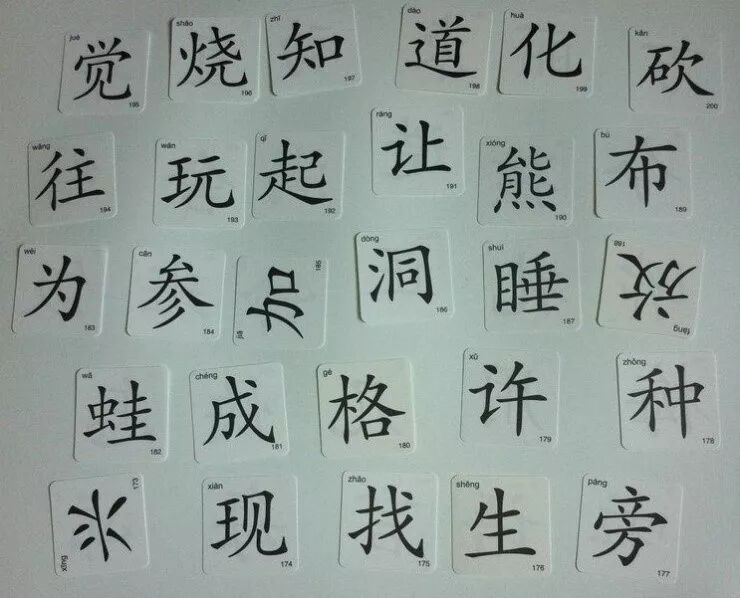 jué shāo zhī dào huà kǎn
觉 烧 知 道 化 砍
195 196 197 198 199 200
wǎng wán qǐ ràng xióng bù
往 玩 起 让 熊 布
194 193 192 191 190 189
wéi cān jiā dòng shuì fàng
为 参 加 洞 睡 放
183 184 185 186 187 188
wā chéng gé xǔ zhǒng
蛙 成 格 许 种
182 181 180 179 178
xīng xiàn zhǎo shēng páng
兴 现 找 生 旁
173 174 175 176 177